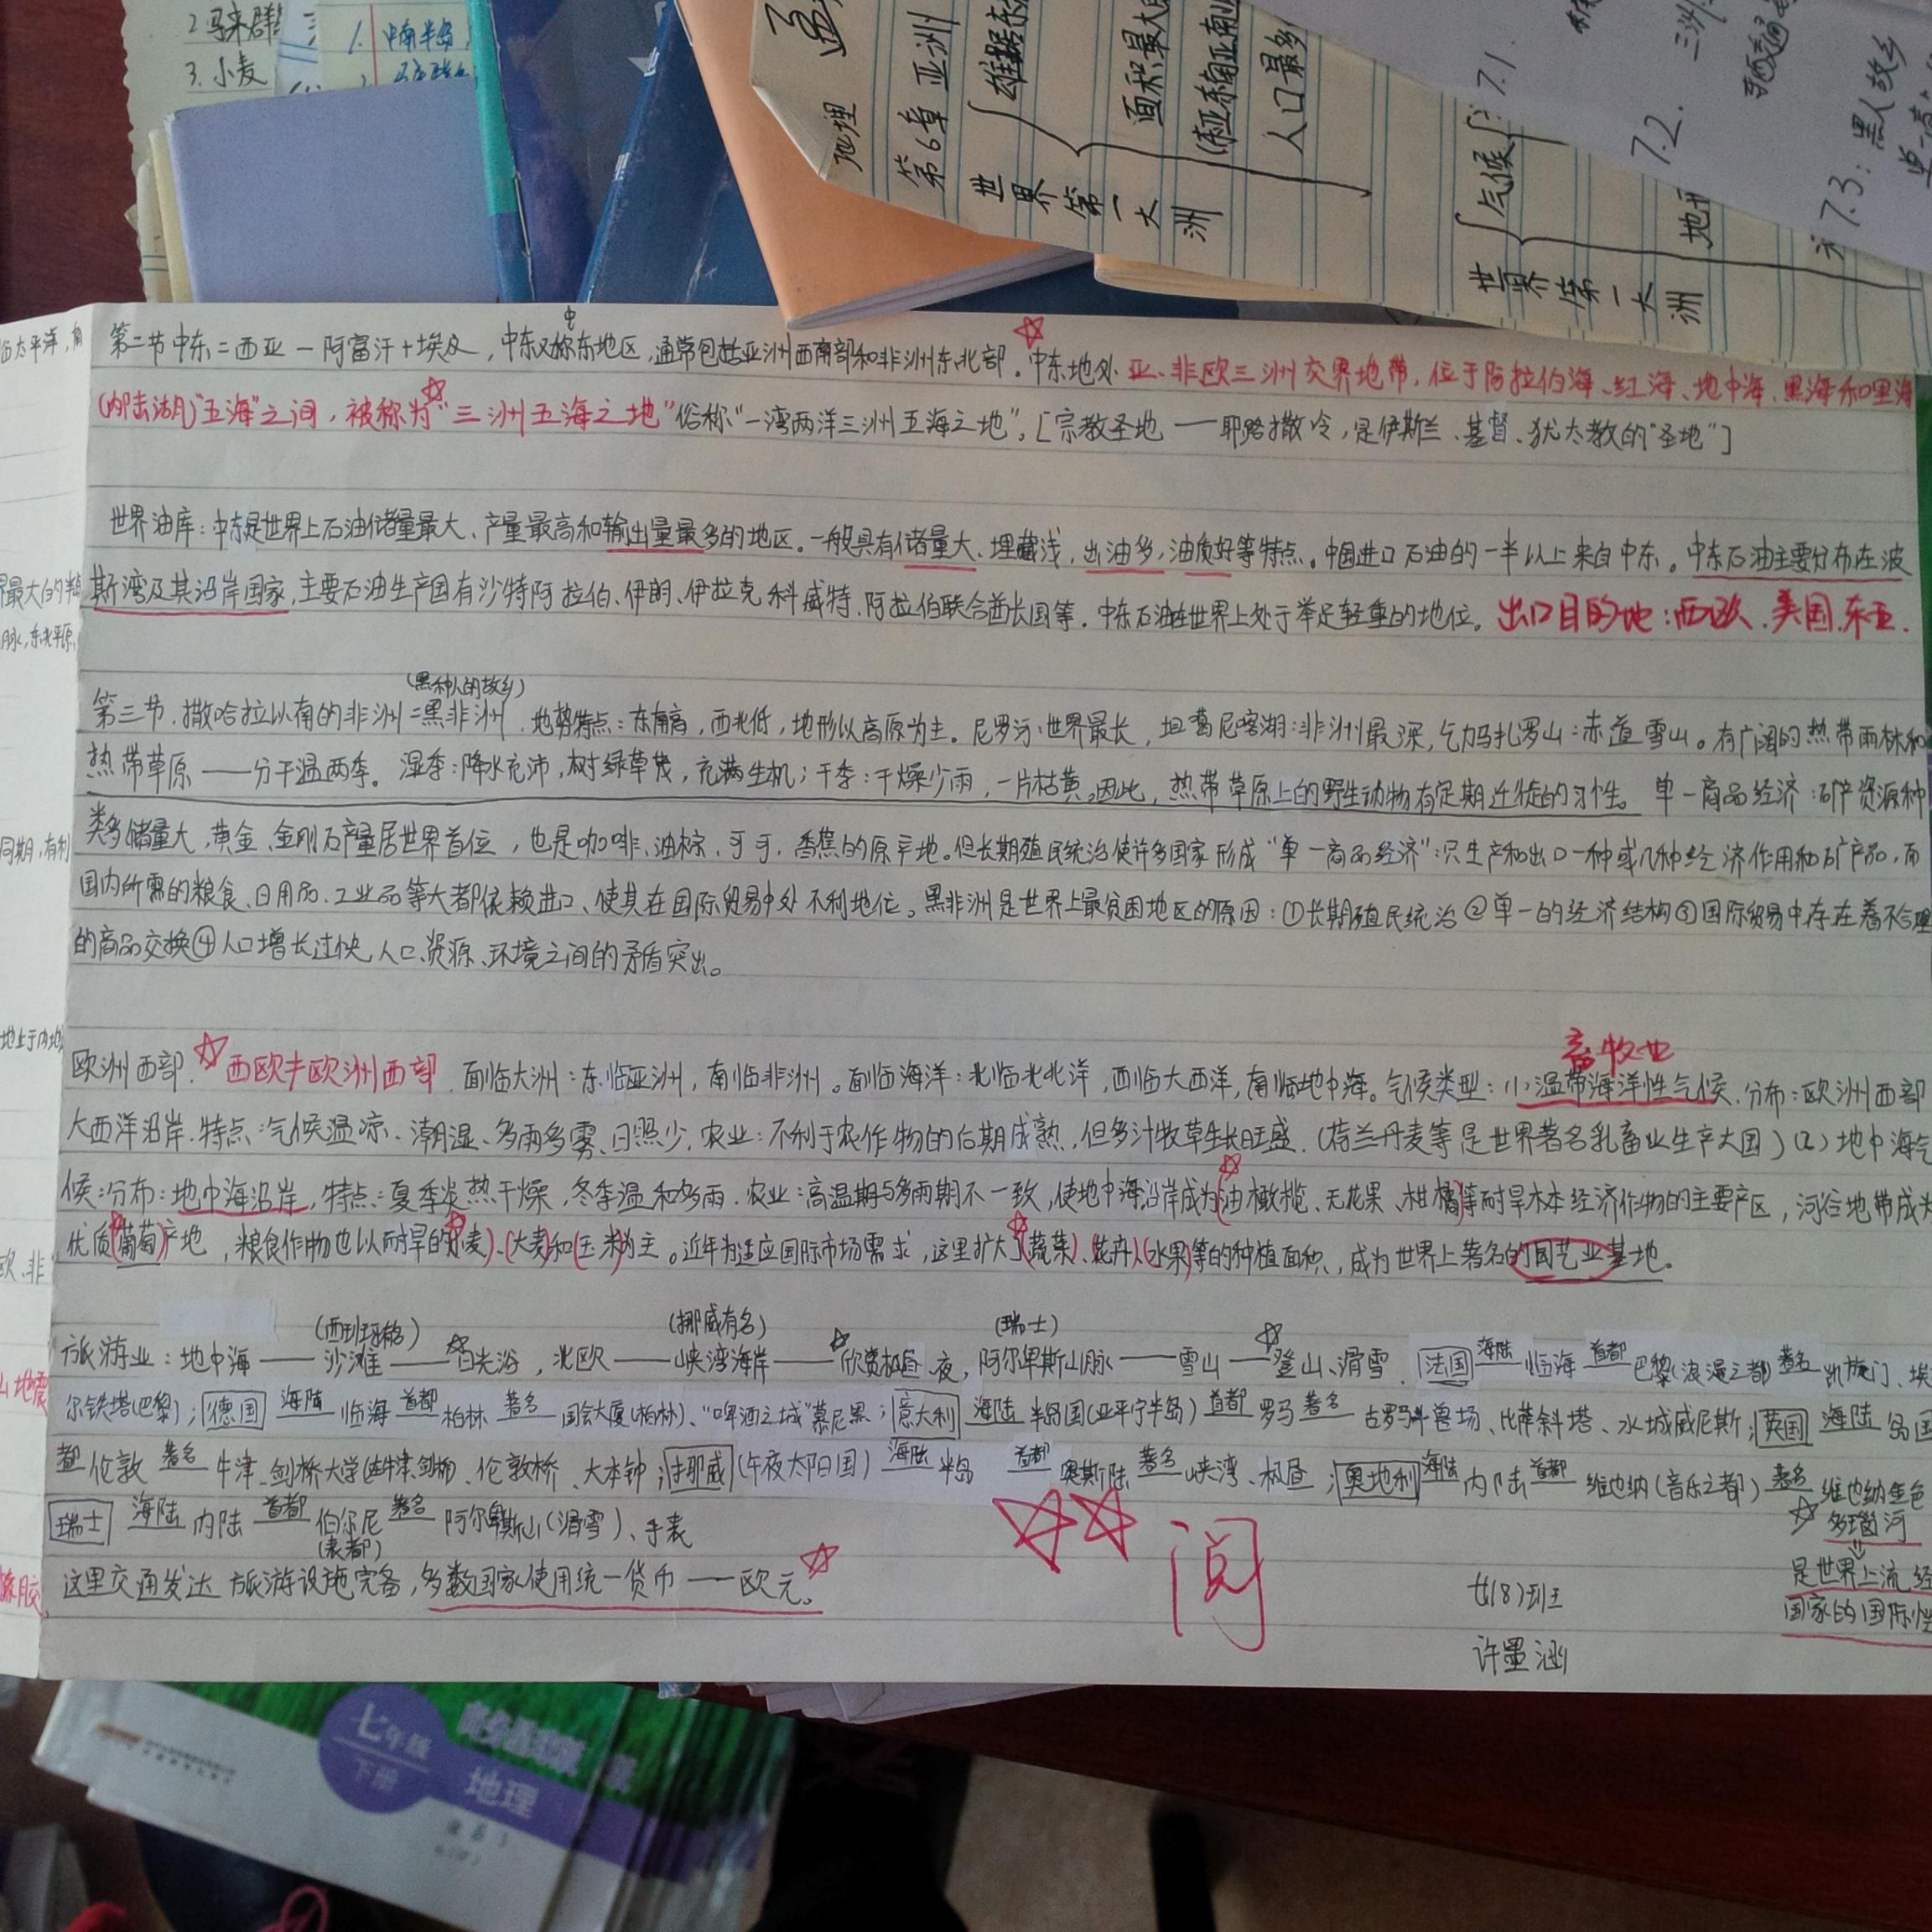 2 马来群
3. 小麦
1. 中南半岛
地理
第6章 亚洲
世界第一大洲
雄踞东
面积最大
(东亚东南亚南
人口最多
世界第一大洲
气候
地形
7.1.
7.2.
三洲
7.3: 黑人故乡
临太平洋,
第二节中东=西亚-阿富汗+埃及,中东又称中东地区,通常包括亚洲西南部和非洲东北部。中东地处亚、非欧三洲交界地带,位于阿拉伯海、红海、地中海、黑海和里海
(内陆湖)"五海"之间,被称为"三洲五海之地"俗称"一湾两洋三洲五海之地"。[宗教圣地——耶路撒冷,是伊斯兰、基督、犹太教的"圣地"]
世界油库:中东是世界上石油储量最大、产量最高和输出量最多的地区。一般具有储量大、埋藏浅,出油多,油质好等特点。中国进口石油的一半以上来自中东。中东石油主要分布在波
界最大的半
斯湾及其沿岸国家,主要石油生产国有沙特阿拉伯、伊朗、伊拉克科威特、阿拉伯联合酋长国等。中东石油在世界上处于举足轻重的地位。出口目的地:西欧、美国、东亚.
脉,东北平原,
(黑种人的故乡)
第三节.撒哈拉以南的非洲=黑非洲,地势特点:东南高,西北低,地形以高原为主。尼罗河:世界最长,坦葛尼喀湖:非洲最深,乞力马扎罗山:赤道雪山。有广阔的热带雨林和
热带草原——分干温两季。湿季:降水充沛,树绿草茂,充满生机;干季:干燥少雨,一片枯黄。因此,热带草原上的野生动物有定期迁徙的习性。单一商品经济:矿产资源种
同期,有利
类多储量大,黄金、金刚石产量居世界首位,也是咖啡、油棕、可可、香蕉的原产地。但长期殖民统治使许多国家形成"单一商品经济":只生产和出口一种或几种经济作用和矿产品,而
国内所需的粮食、日用品、工业品等大都依赖进口、使其在国际贸易中处不利地位。黑非洲是世界上最贫困地区的原因:①长期殖民统治②单一的经济结构③国际贸易中存在着不合理
的商品交换④人口增长过快,人口、资源、环境之间的矛盾突出。
畜牧业
欧洲西部.☆西欧≠欧洲西部.面临大洲:东临亚洲,南临非洲。面临海洋:北临北冰洋,西临大西洋,南临地中海。气候类型:(1)温带海洋性气候.分布:欧洲西部
大西洋沿岸.特点:气候温凉、潮湿、多雨多雾、日照少.农业:不利于农作物的后期成熟,但多汁牧草生长旺盛.(荷兰丹麦等是世界著名乳畜业生产大国)(2)地中海气
候:分布:地中海沿岸,特点:夏季炎热干燥,冬季温和多雨.农业:高温期与多雨期不一致,使地中海沿岸成为(油橄榄、无花果、柑橘)等耐旱木本经济作物的主要产区,河谷地带成为
欧.非
优质(葡萄)产地,粮食作物也以耐旱的(小麦)、(大麦)和(玉米)为主。近年为适应国际市场需求,这里扩大了(蔬菜)、(花卉)、(水果)等的种植面积,成为世界上著名的园艺业基地。
(西班牙称名) (挪威有名) (瑞士)
旅游业:地中海——沙滩——☆日光浴,北欧——峡湾海岸——☆欣赏极昼夜,阿尔卑斯山脉——雪山——☆登山、滑雪.法国 海陆 临海 首都 巴黎(浪漫之都)著名 凯旋门、埃
山地震
尔铁塔(巴黎);德国 海陆 临海 首都 柏林 著名 国会大厦(柏林)、"啤酒之城"慕尼黑;意大利 海陆 半岛国(亚平宁半岛)首都 罗马 著名 古罗马斗兽场、比萨斜塔、水城威尼斯;英国 海陆 岛国
都 伦敦 著名 牛津、剑桥大学(在牛津、剑桥)、伦敦桥、大本钟;挪威(午夜太阳国)海陆 半岛 首都 奥斯陆 著名 峡湾、极昼;奥地利 海陆 内陆 首都 维也纳(音乐之都)著名 维也纳金色
瑞士 海陆 内陆 首都 伯尔尼 著名 阿尔卑斯山(滑雪)、手表
(表都)
☆多瑙河
这里交通发达 旅游设施完备,多数国家使用统一货币——欧元。☆
☆☆ 阅
七(8)班
许墨涵
是世界上流经
国家的国际性
橡胶
七年级
下册
地理